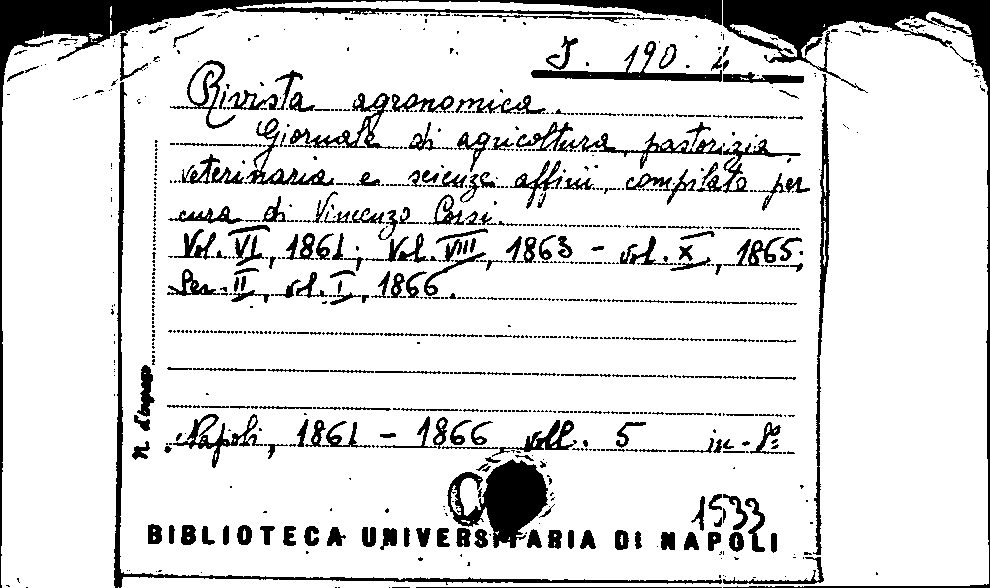 J. 190. 4
Rivista agronomica.
Giornale di agricoltura, pastorizia,
veterinaria e scienze affini, compilato per
cura di Vincenzo Corsi.
Vol. VI, 1861; Vol. VIII, 1863 - vol. X, 1865;
Ser. II, vol. I, 1866.
N. d'ingresso
Napoli, 1861 - 1866 voll. 5 in-8º
1533
BIBLIOTECA UNIVERSITARIA DI NAPOLI